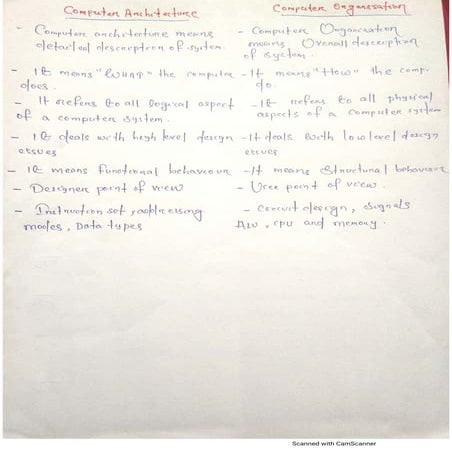 Computer Architecture
Computer Organisation
- Computer architecture means
detailed description of system.
- Computer Organisation
means Overall description
of system.
- It means "What" the computer
does.
- It means "How" the comp.
do.
- It refers to all logical aspect
of a computer system.
- It refers to all physical
aspects of a computer system
- It deals with high level design
essues
- It deals with low level design
essues
- It means Functional behaviour
- It means Structural behaviour
- Designer point of view
- User point of view.
- Instruction set, addressing
modes, Data types
- Circuit design, signals
ALU, cpu and memory.
Scanned with CamScanner